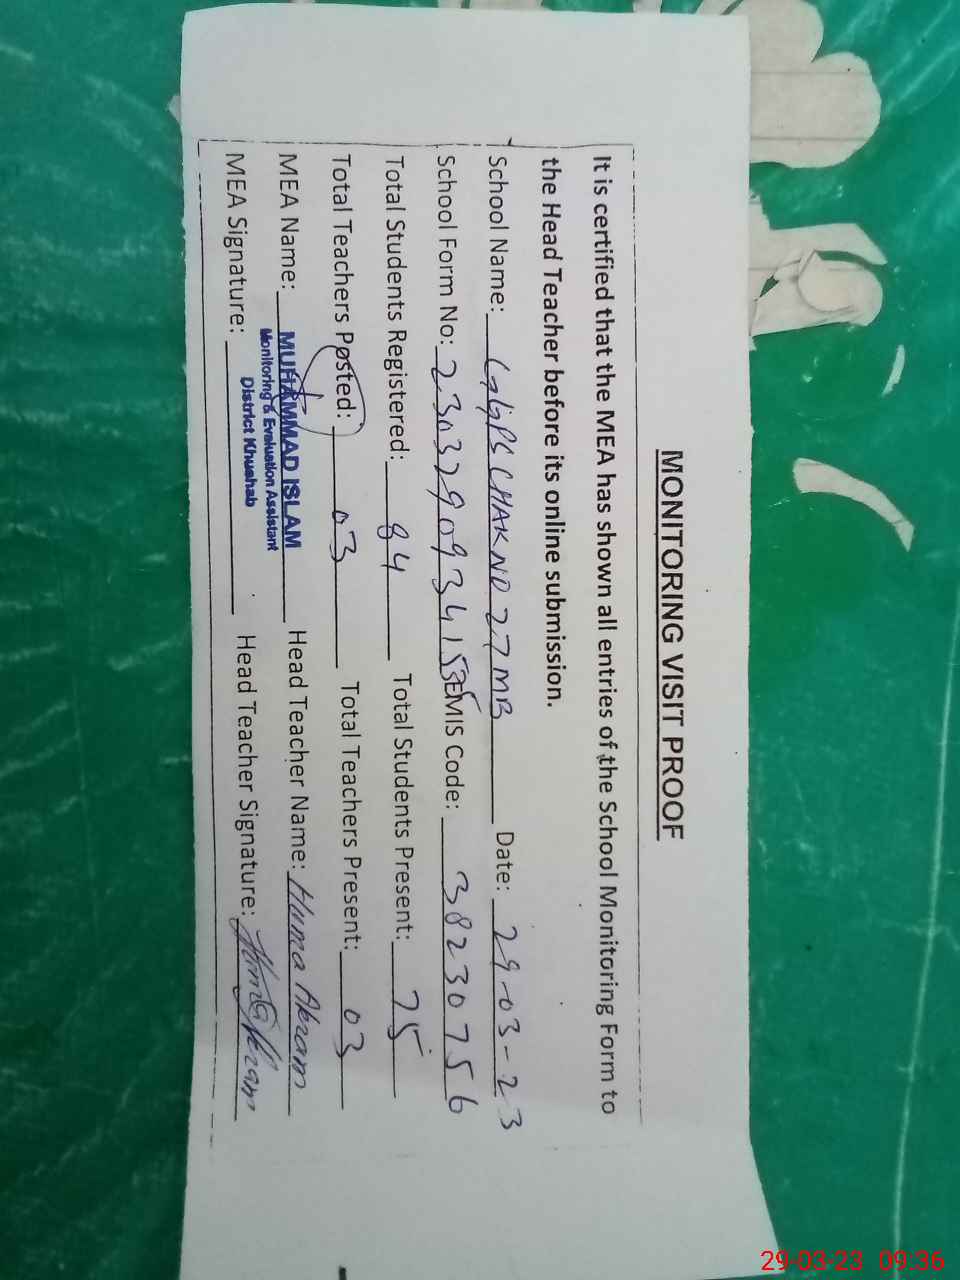 MONITORING VISIT PROOF
It is certified that the MEA has shown all entries of the School Monitoring Form to
the Head Teacher before its online submission.
School Name: GGPS CHAK NO 27 MB Date: 29-03-23
School Form No: EMIS Code: 38230756
Total Students Registered: 84 Total Students Present: 75
Total Teachers Posted: 03 Total Teachers Present: 03
MEA Name: MUHAMMAD ISLAM Head Teacher Name: Huma Akram
Monitoring & Evaluation Assistant
District Khushab
MEA Signature: Head Teacher Signature: Huma Akram
29-03-23 09:36